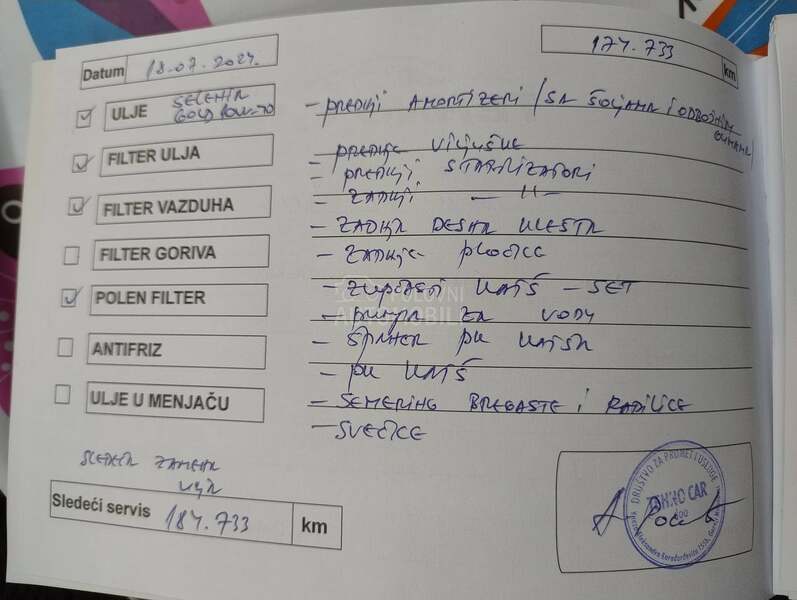 Datum 18.07.2024.
174.733 km
ULJE SELENIA GOLD
FILTER ULJA
FILTER VAZDUHA
FILTER GORIVA
POLEN FILTER
ANTIFRIZ
ULJE U MENJAČU
- PREDNJI AMORTIZERI / SA ŠOLJAMA I ODBOJNIM GUMAMA /
- PREDNJE VILJUŠKE
- PREDNJI STABILIZATORI
- ZADNJI - 11 -
- ZADNJA DESNA KLEŠTA
- ZADNJE PLOČICE
- ZUPČASTI KAIŠ - SET
- PUMPA ZA VODU
- ŠPANER PK KAIŠA
- PK KAIŠ
- SEMERING BREGASTE I RADILICE
- SVEĆICE
POLOVNI
AUTOMOBILI
SLEDEĆA ZAMENA
ULJA
Sledeći servis 184.733 km
DRUŠTVO ZA PROMET I USLUGE
CAR